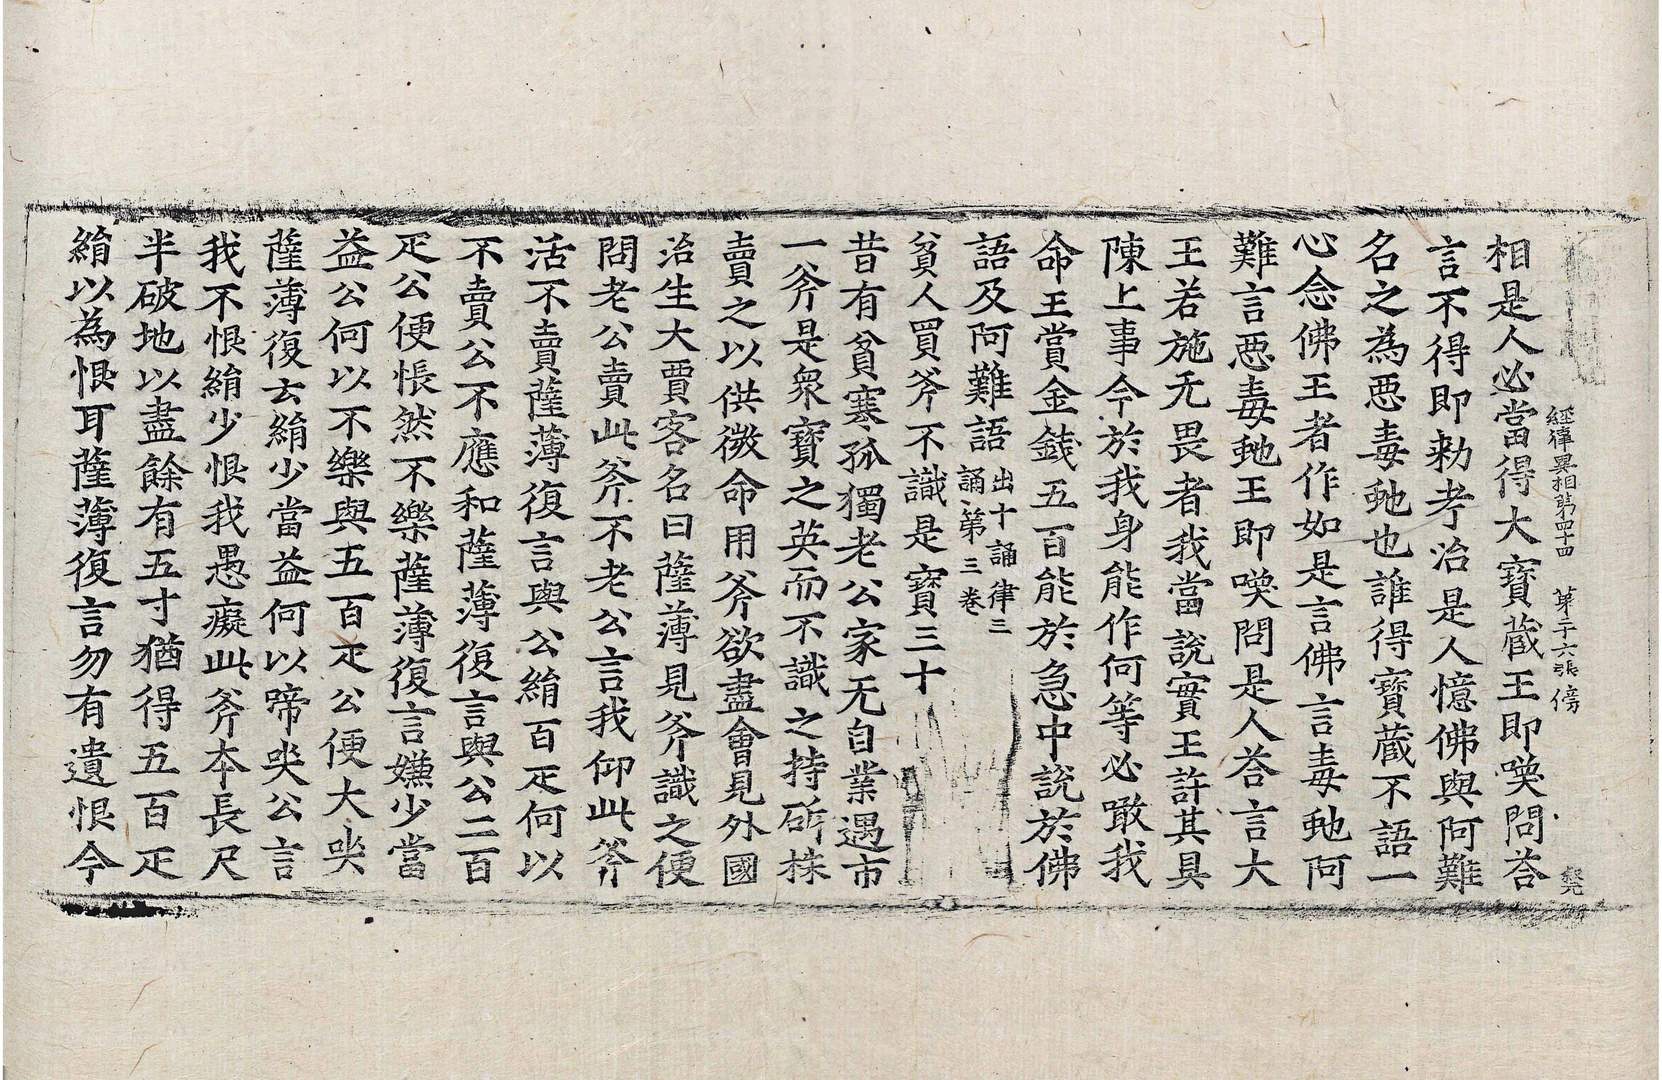 經律異相第四十四　第二十六張　傍
相是人必當得大寶藏王即喚問荅
言不得即勑考治是人憶佛與阿難
名之為惡毒虵也誰得寶藏不語一
心念佛王者作如是言佛言毒虵阿
難言惡毒虵王即喚問是人荅言大
王若施无畏者我當說實王許其具
陳上事今於我身能作何等必噉我
命王賞金錢五百能於急中說於佛
語及阿難語出十誦律三
誦第三卷
貧人買斧不識是寶三十
昔有貧寒孤獨老公家无自業遇市
一斧是衆寶之英而不識之持斫株
賣之以供微命用斧欲盡會見外國
治生大賈客名曰薩薄見斧識之便
問老公賣此斧不老公言我仰此斧
活不賣薩薄復言與公絹百疋何以
不賣公不應和薩薄復言與公二百
疋公便悵然不樂薩薄復言嫌少當
益公何以不樂與五百疋公便大哭
薩薄復云絹少當益何以啼哭公言
我不恨絹少恨我愚癡此斧本長尺
半破地以盡餘有五寸猶得五百疋
絹以為恨耳薩薄復言勿有遺恨今